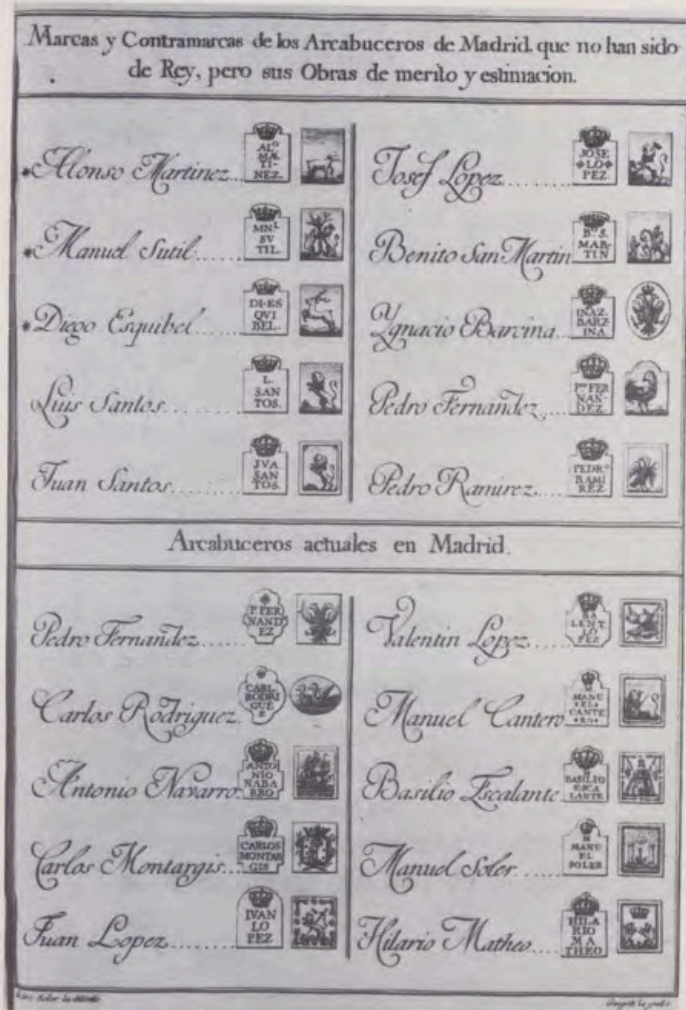 Marcas y Contramarcas de los Arcabuceros de Madrid que no han sido
de Rey, pero sus Obras de merito y estimacion.
Alonso Martinez
ALº
MA
TI-
NEZ.
Manuel Sutil
MNL
SV
TIL.
Diego Esquibel
DI-ES
QVI
BEL.
Luis Santos
L.
SAN
TOS.
Juan Santos
JVA.
SAN
TOS.
Josef Lopez
JOSE
LO
PEZ.
Benito San Martin
Bº S.
MAR-
TIN
Ygnacio Barcina
INAZ.
BARZ
INA
Pedro Fernandez
Pº FER
NAN-
DEZ
Pedro Ramirez
PEDRº
RAMI
REZ
Arcabuceros actuales en Madrid.
Pedro Fernandez
P. FER
NAND
EZ
Carlos Rodriguez
CARL
RODRI
GUE
Z
Antonio Navarro
ANTO
NIO
NABA
RRO
Carlos Montargis
CARLOS
MONTAR
GIS
Juan Lopez
IVAN
LO
PEZ
Valentin Lopez
LENT.
LO
PEZ
Manuel Cantero
MANU
EL
CANTE
RO
Basilio Escalante
BASILIO
ESCA
LANTE
Manuel Soler
MANU
EL
SOLER
Hilario Matheo
HILA
RIO
MA
THEO
Soler la